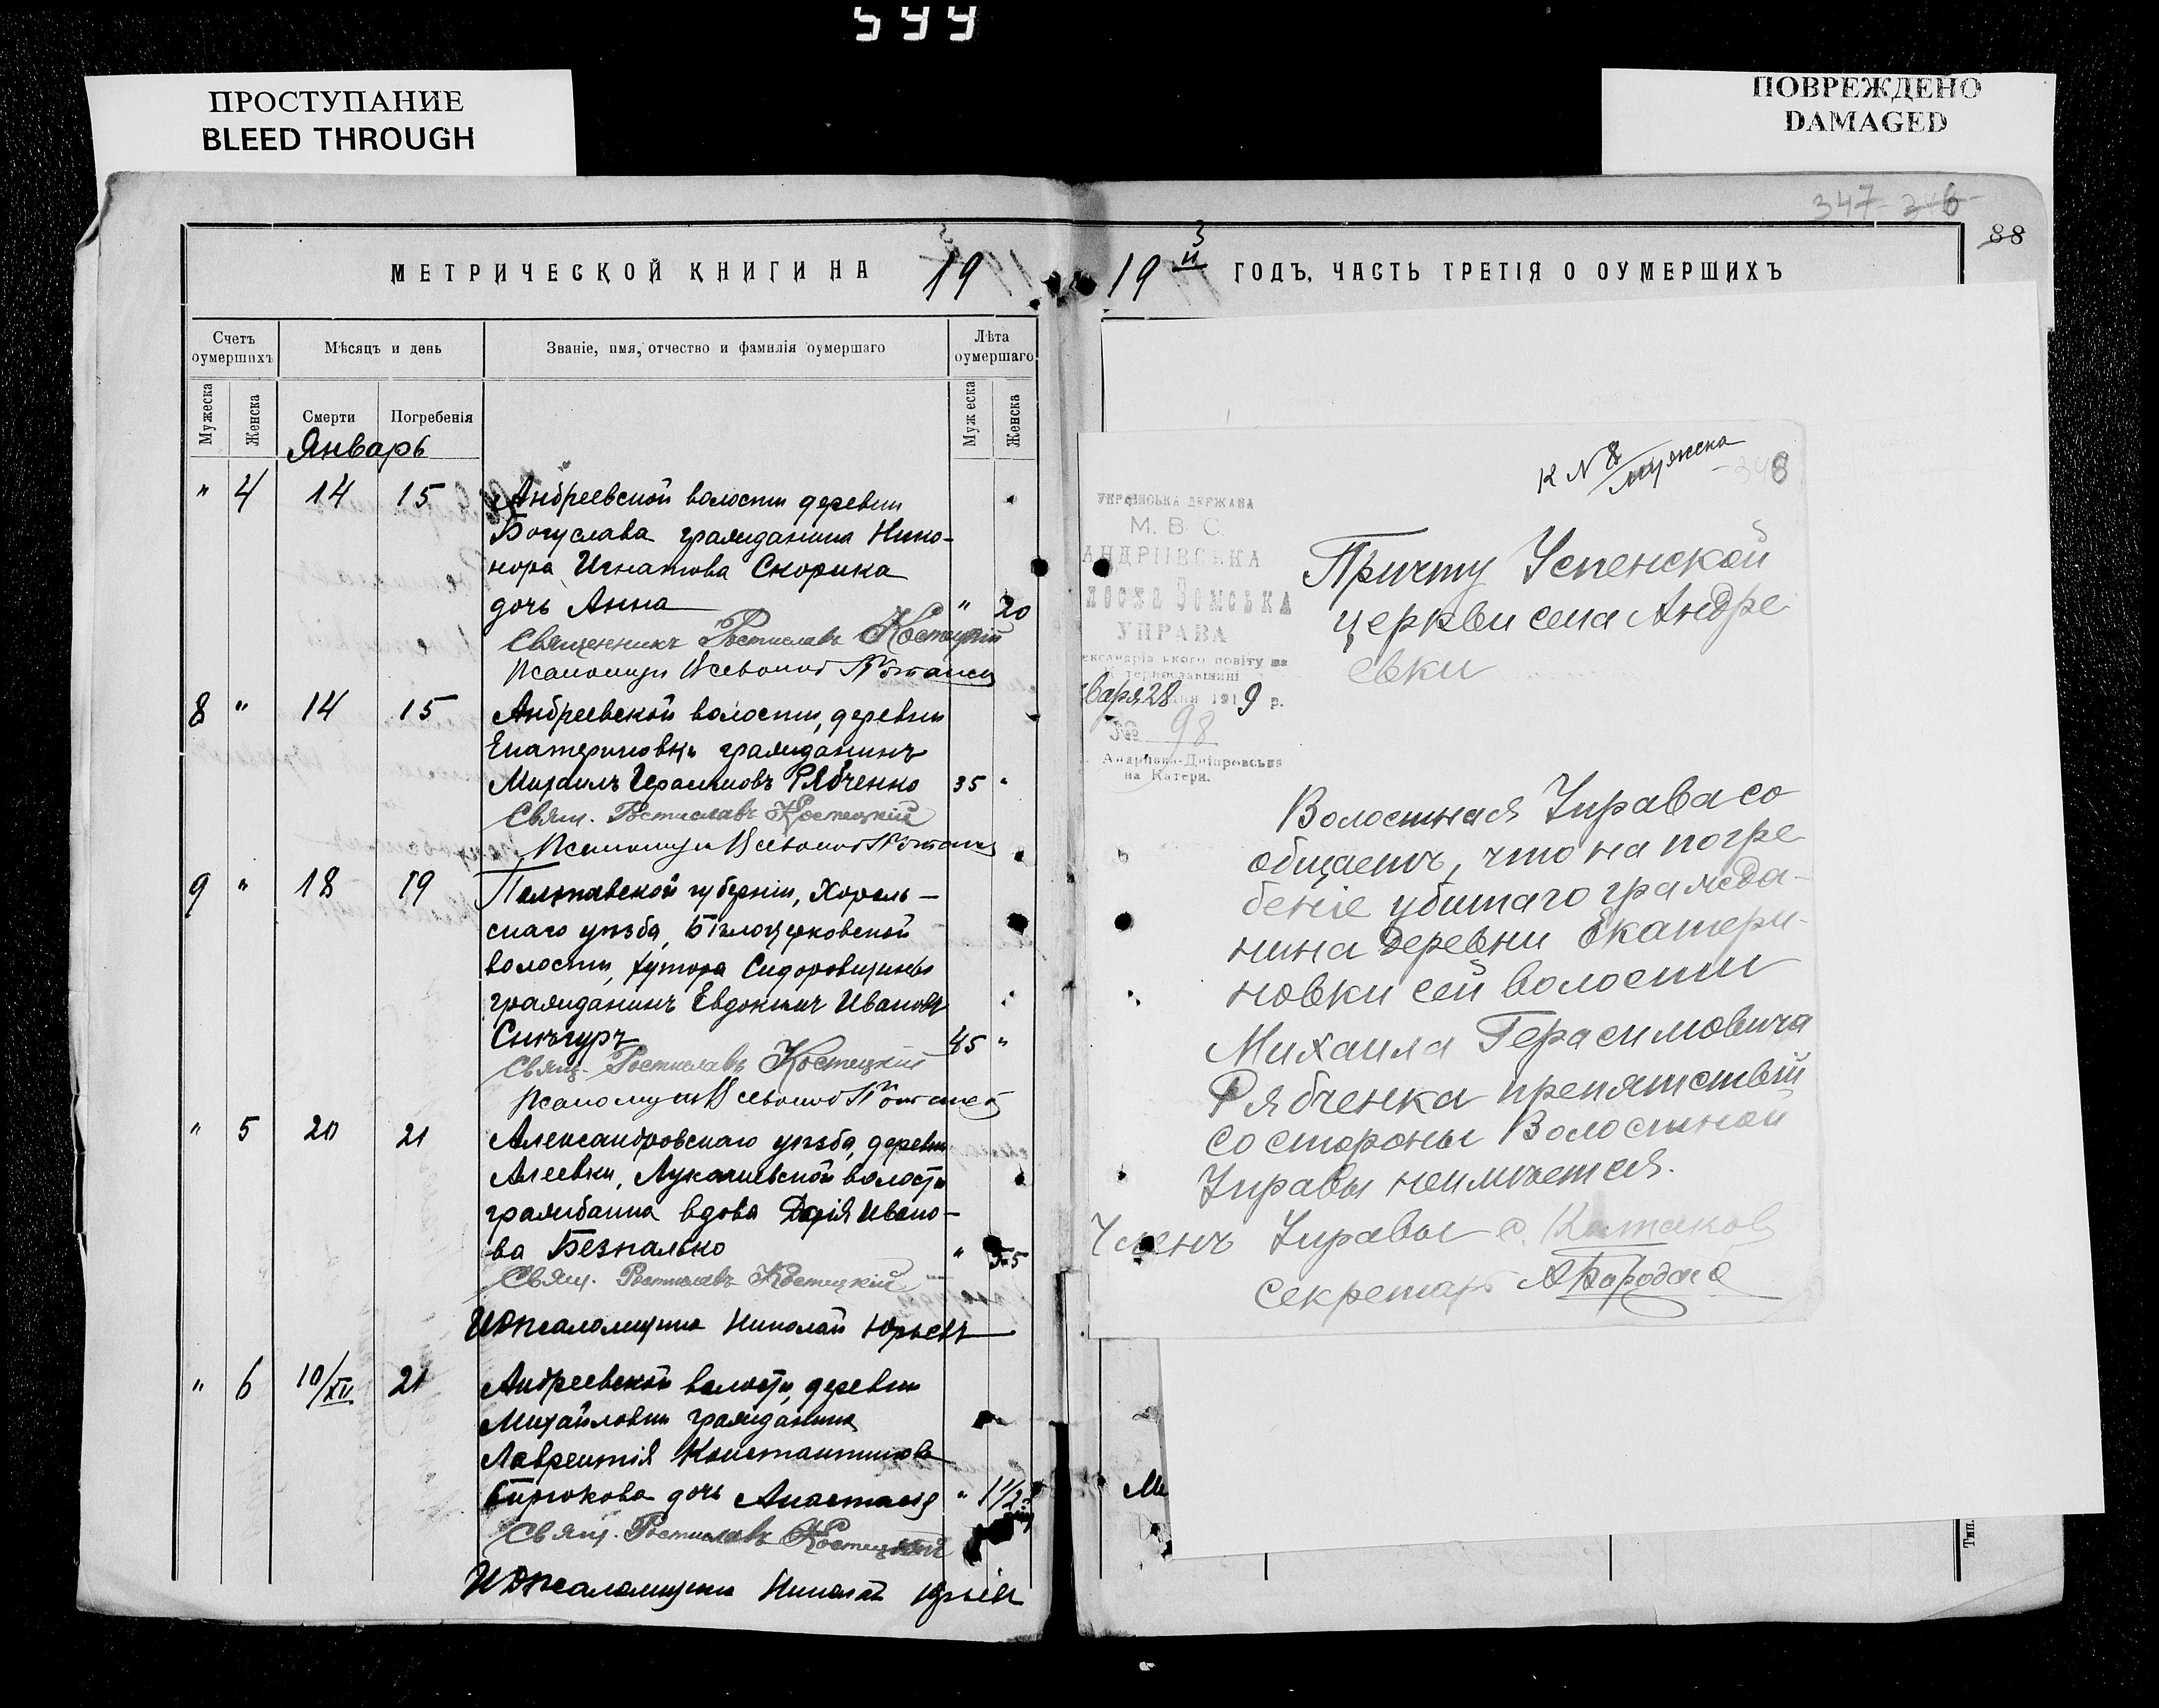 599
ПРОСТУПАНИЕ
BLEED THROUGH
ПОВРЕЖДЕНО
DAMAGED
347
88
МЕТРИЧЕСКОЙ КНИГИ НА 19
19 й ГОДЪ, ЧАСТЬ ТРЕТІЯ О ОУМЕРШИХЪ
Счетъ оумершихъ
Мѣсяцъ и день
Званіе, имя, отчество и фамилія оумершаго
Лѣта оумершаго
Мужеска
Женска
Смерти
Погребенія
Мужеска
Женска
Январь
" 4 14 15 Андреевской волости деревни
Богуслава гражданина Нико-
нора Игнатова Скорика
дочь Анна " 20
Священникъ Ростиславъ Костецкій
Псаломщик
8 " 14 15 Андреевской волости, деревни
Екатериновки гражданинъ
Михаилъ Герасимовъ Рябченко 35 "
Свящ. Ростиславъ Костецкій
Псаломщик
9 " 18 19 Полтавской губерніи, Хороль-
скаго уѣзда, Бѣлоцерковской
волости, хутора Сидоровщины
гражданинъ Евдокимъ Ивановъ
45 "
Свящ. Ростиславъ Костецкій
Псаломщик
" 5 20 21 Александровскаго уѣзда, деревни
волости
гражданка вдова Дарія Ивано-
ва Безпалько "
Свящ. Ростиславъ Костецкій
Псаломщика Николай Юрьевъ
" 6 10/XII 21 Андреевской волости, деревни
Михайловки гражданина
Лаврентія Константинова
Бирюкова дочь Анастасія " 1 1/2
Свящ. Ростиславъ Костецкій
Псаломщика Николай Юрьевъ
К N 8 мужеска
УКРАЇНСЬКА ДЕРЖАВА
М. В. С.
АНДРІІВСЬКА
ЗЕМСЬКА
УПРАВА
повіту на
28 1919 р.
№ 98
Андріівка-Дніпровська
на Катери.
Причту Успенской
церкви села Андре
евки
Волостная Управа со
общаетъ, что на погре
беніе убитаго гражда-
нина деревни Екатери-
новки сей волости
Михаила Герасимовича
Рябченка препятствій
со стороны Волостной
Управы неимѣется.
Членъ Управы
Секретарь
Ме
Тип.